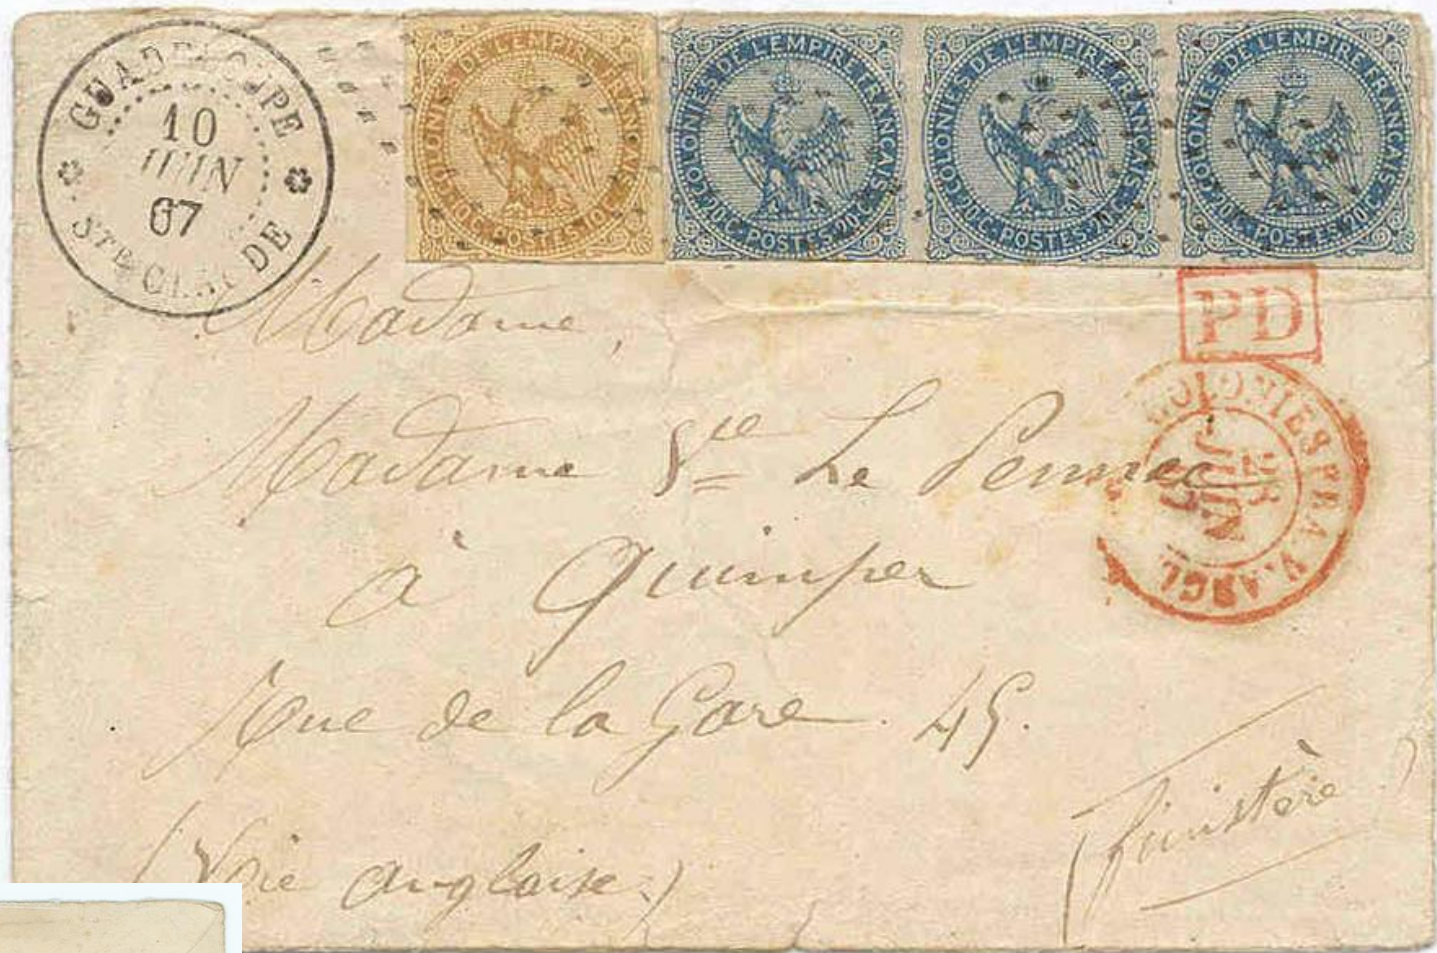 GUADELOUPE
10
JUIN
67
STE CLAUDE
COLONIES DE L'EMPIRE FRANÇAIS
10 C. POSTES 10 C.
COLONIES DE L'EMPIRE FRANÇAIS
20 C. POSTES 20 C.
COLONIES DE L'EMPIRE FRANÇAIS
20 C. POSTES 20 C.
COLONIES DE L'EMPIRE FRANÇAIS
20 C. POSTES 20 C.
PD
COLONIES FRA V. ANGL
JUIN
Madame,
Madame Vve Le Pennec
à Quimper
Rue de la Gare. 45.
(Voie anglaise)
(finistère)